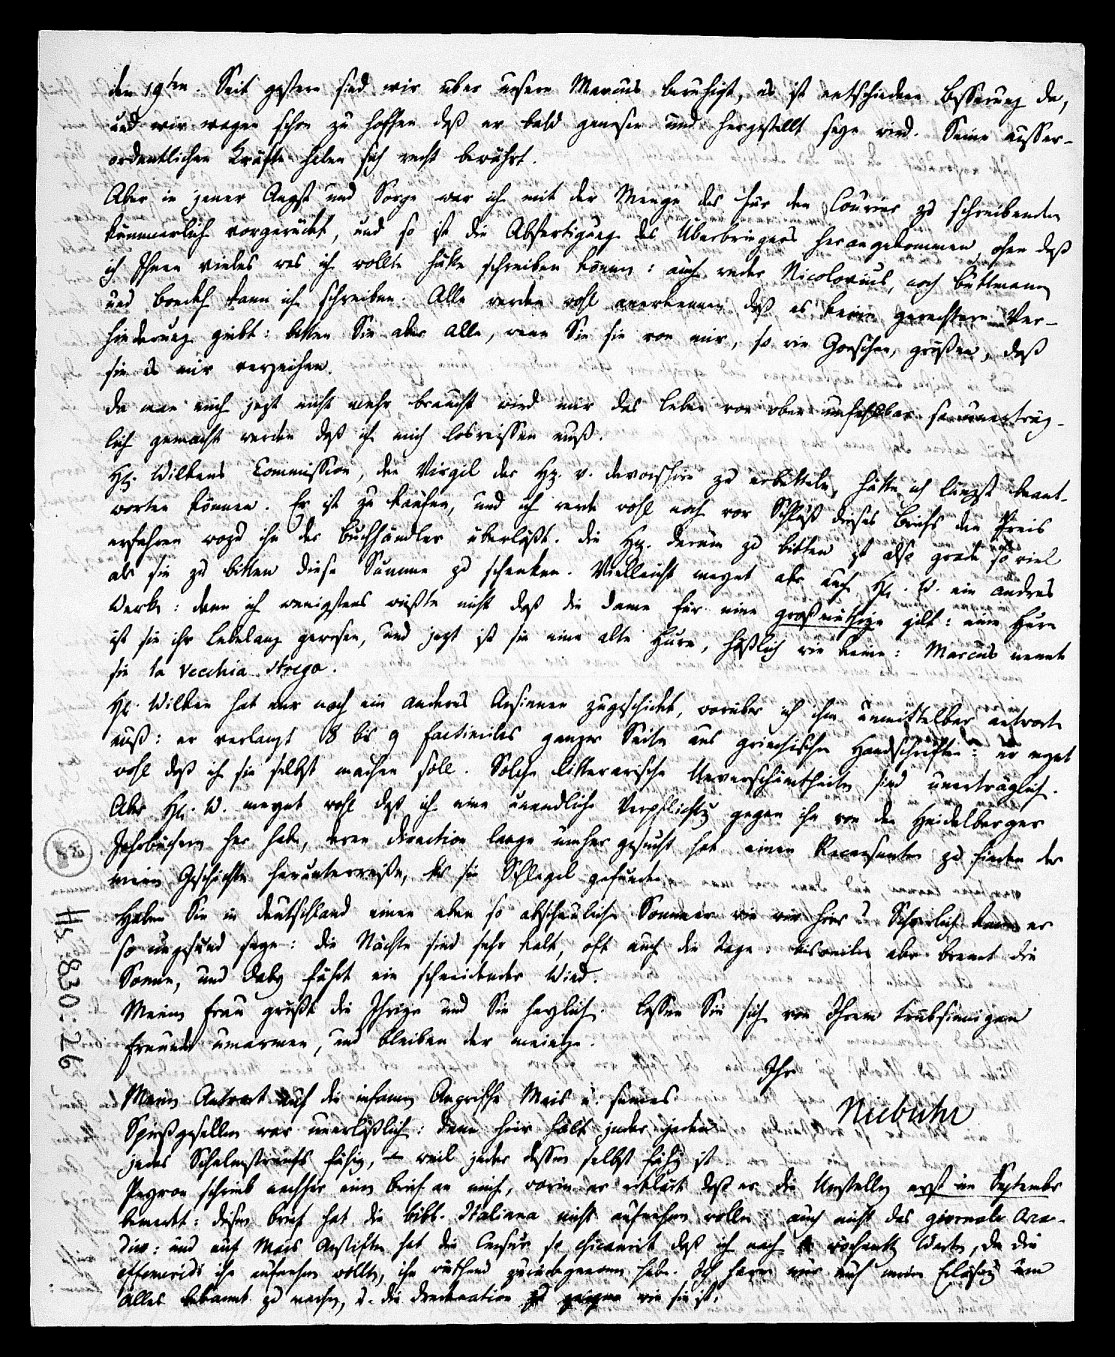 den 19ten. Seit gestern sind wir über unsern Marcus beruhigt, es ist entschiedene Besserung da,
und wir wagen schon zu hoffen daß er bald genesen und hergestellt seyn wird. Seine ausser-
ordentlichen Kräfte haben sich recht bewährt.
Aber in jener Angst und Sorge war ich mit der Menge des für den Courier zu schreibenden
kümmerlich vorgerückt, und so ist die Abfertigung des Überbringers herangekommen, ohne daß
ich Ihnen vieles was ich wollte hätte schreiben können: auch weder Nicolovius, noch Buttmann
und Brandis kann ich schreiben. Alle werden wohl anerkennen daß es keine gerechtere Ver-
hinderung giebt: bitten Sie aber alle, wenn Sie sie von mir, so wie Goeschen, grüßen, daß
sie es mir verzeihen.
Da man mich jezt nicht mehr braucht wird mir das Leben von oben unfehlbar so unerträg-
lich gemacht werden daß ich mich losreissen muß.
Hn. Wilkens Commission, den Virgil der Hz. v. Devonshire zu erbitten, hätte ich längst beant-
worten können. Er ist zu kaufen, und ich werde wohl noch vor Schluß dieses Briefs den Preis
erfahren wozu ihn der Buchhändler überläßt. Die Hz. darum zu bitten ist also grade so viel
als sie zu bitten diese Summe zu schenken. Vielleicht meynt aber auch Hr. W. ein andres
Werk: denn ich wenigstens wüßte nicht daß die Dame für eine großmüthige gilt: eine Hure
ist sie ihr Lebelang gewesen, und jezt ist sie eine alte Hure, häßlich wie keine: Marcus nennt
sie la vecchia strega.
Hr. Wilken hat mir noch ein anderes Ansinnen zugeschickt, worüber ich ihm unmittelbar antworten
muß: er verlangt 8 bis 9 Facsimiles ganzer Seiten aus griechischen Handschriften: er meynt
wohl daß ich sie selbst machen soll. Solche litterarische Unverschämtheiten sind unerträglich.
Aber Hr. W. meynt wohl daß ich eine unendliche Verpflichtg gegen ihn von den Heidelberger
Jahrbüchern her habe, deren Direction lange umher gesucht hat einen Recensenten zu finden der
meine Geschichte herunterreiße, bis sie Schlegel gefunden.
Haben Sie in Deutschland einen eben so abscheulichen Sommer wie wir hier? Schwerlich kann er
so ungesund seyn: die Nächte sind sehr kalt, oft auch die Tage: bisweilen aber brennt die
Sonne, und dabey fährt ein schneidender Wind.
Meine Frau grüßt die Ihrige und Sie herzlich. Lassen Sie sich von Ihrem trübsinnigen
Freunde umarmen, und bleiben der meinige.
Ihr
Niebuhr
Meine Antwort auf die infamen Angriffe Mais u. seines
Spießgesellen war unerläßlich: denn hier hält jeder jeden
jedes Schelmstreichs fähig, – weil jeder dessen selbst fähig ist.
Peyron schrieb nachher einen Brief an mich, worin er erklärt daß er die Umstellen erst im September
bemerkt: diesen Brief hat die Bibl. Italiana nicht aufnehmen wollen, auch nicht das giornale Arca-
dico: und auf Mais Anstiften hat die Censur so chicanirt daß ich nach wochenlg. Warten, da die
Effemeridi ihn aufnehmen wollten, ihn wüthend zurückgenommen habe. Ich harre nur auf meine Erlösung um
alles bekannt zu machen, u. die Declaration zu zeigen wie sie ist.
Hs. 830: 26